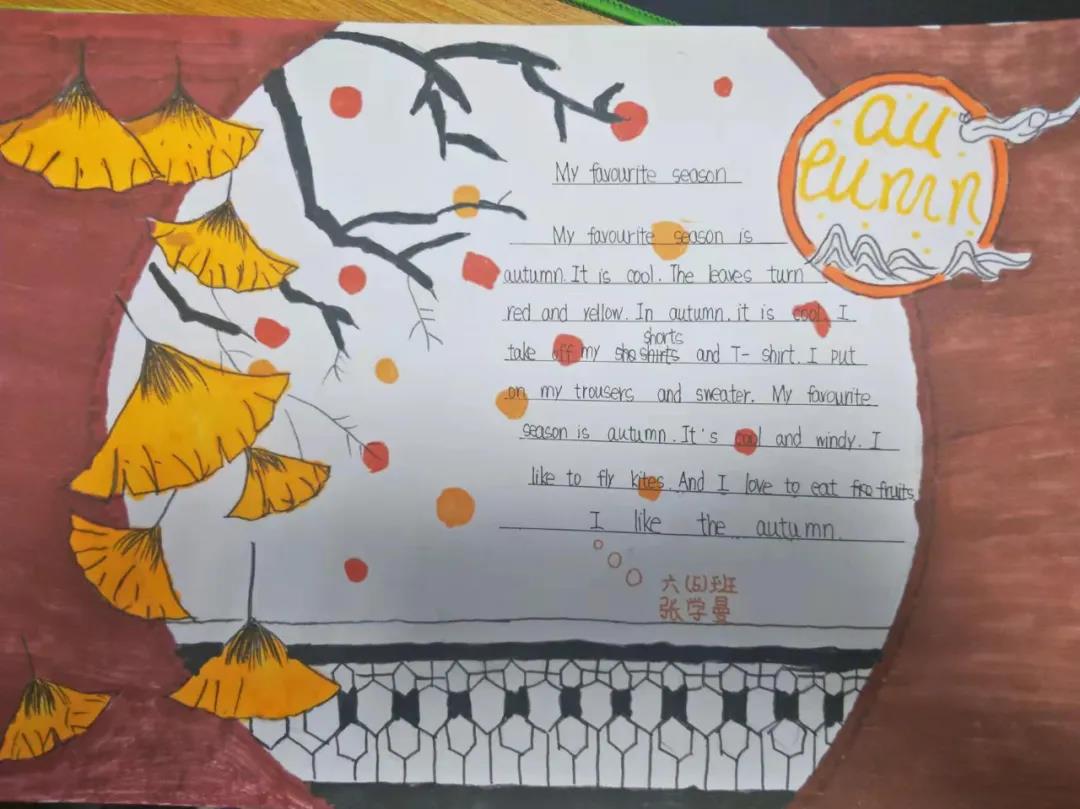 au
eumn
My favourite season
My favourite season is
autumn. It is cool. The leaves turn
red and yellow. In autumn. it is cool. I
shorts
take off my sho shirts and T- shirt. I put
on my trousers and sweater. My favourite
season is autumn. It's cool and windy. I
like to fly kites. And I love to eat fro fruits.
I like the autumn.
六(5)班
张学曼